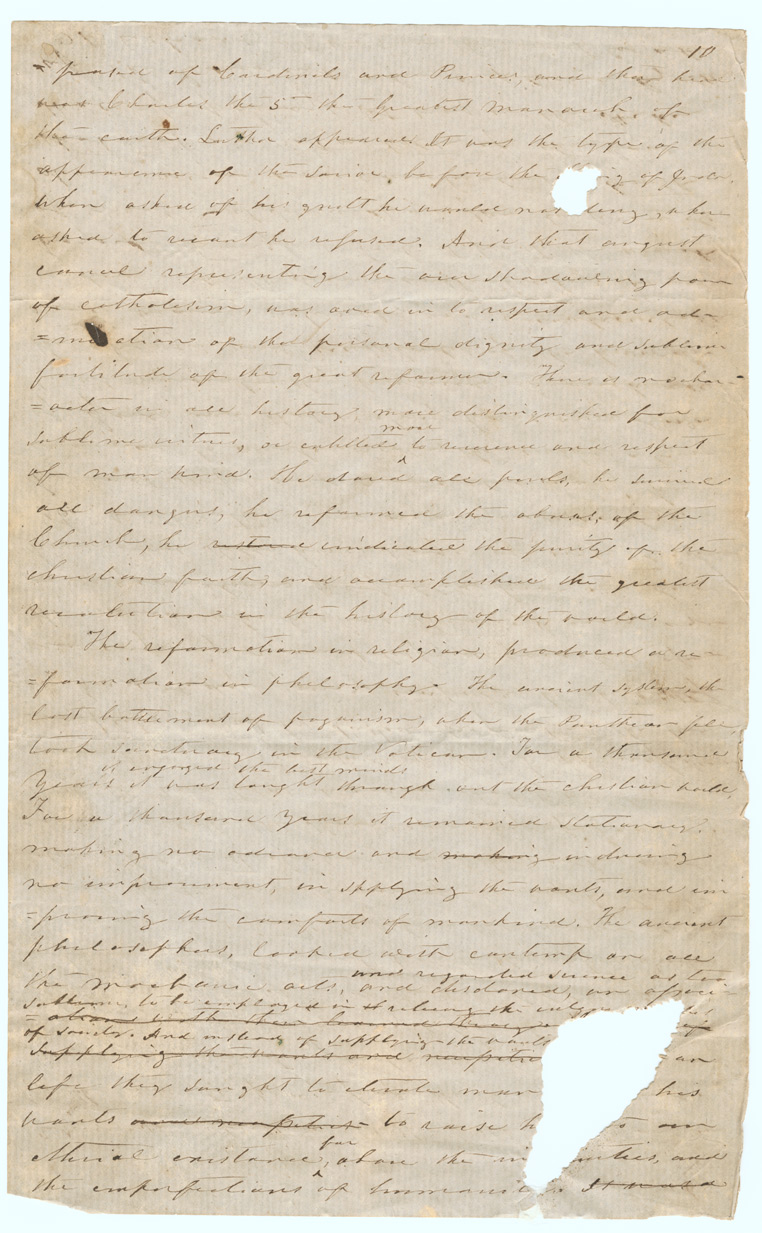 10
=posed of Cardinals and Princes, and the head
was Charles the 5th the Greatest monarch of
the earth. Luther appeared. It was the type of the
appearance of the Savior before the of Jude
when asked of his guilt he would not deny, when
asked to recant he refused. And that august
council representing the over shadowing power
of catholicism, was awed in to respect and ad=
=miration of the personal dignity and sublime
fortitude of the great reformer. There is no char=
=acter in all history more distinguished for
more
sublime virtues, or entitled ^ to reverence and respect
of man kind. He dared all perils, he
all dangers, he reformed the abuses of the
Church, he vindicated the purity of the
christian faith, and accomplished the greatest
revolution in the history of the world.
The reformation in religion, produced a re=
=formation in philosophy. The ancient system the
last battlement of paganism, when the Pantheon fell,
took sanctuary in the Vatican. For a thousand
it engaged the best minds
years it was taught through out the christian world,
For a thousand years it remained stationary.
making no advance and making inducing
no improvement, in applying the wants, and im
=proving the comforts of mankind. The ancient
philosophers, looked with contemp on all
and regarded science as too
the mechanic arts, and disdained, an associ
sublime, to be employed in relieving the
=ations with the learned
of society. And instead of supplying the wants
supplying the wants and necessities an
life they sought to elevate man his
wants and necessities to raise to an
far
etherial existance, ^ above the and
the imperfections of humanity. It was a